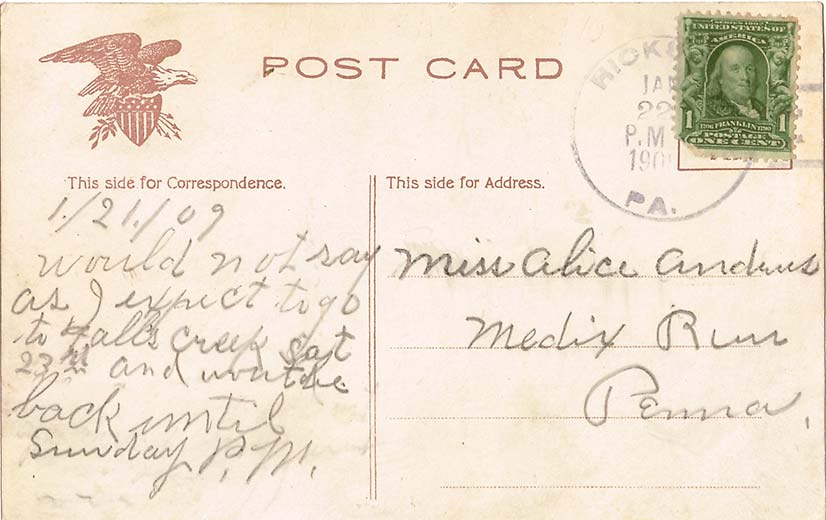 POST CARD
This side for Correspondence.
This side for Address.
1/21/09
would not say
as I expect to go
to Falls Creek Sat
23rd and wont be
back until
Sunday P.M.
Miss Alice Andrus
Medix Run
Penna.
JAN
22
P.M
190
PA.
SERIES 1902
UNITED STATES OF
AMERICA
1706 FRANKLIN 1790
1 1
POSTAGE
ONE CENT